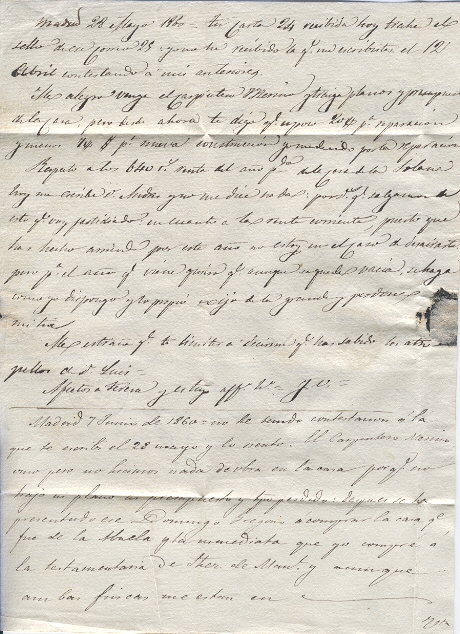 Madrid 28 Mayo 1860 - tu Carta 24 recibida hoy trahe el
sello de en Correo 25: yo no he recibido la q.e me escribistes el 12
Abril contestando a mis anteriores.
Me alegro venga el Carpintero y trayga planos y presupuestos
de la Casa, pero desde ahora te digo q.e p.a reparacion
y menos p.a nueva construccion y me decido por la reparacion
Respecto a los 640 r.s renta del año p.do de la Casa de la Solana
hoy me escribe D. Andres y no me dice nada: q.e salgamos de
este q.e voy fastidiado en cuanto a la renta corriente, puesto que
has hecho arriendo por este año no estoy en el Caso de
pero p.a el año q.e viene quiero q.e aunque se quede vacia, se haga
como yo dispongo y lo propio de la grande y perdona
Me extraña q.e te limites a decirme q.e has sabido los atro-
pellos a D. Luis =
Afectos a Teresa y es tuyo aff.mo H.o = J. V. =
Madrid 7 Junio de 1860 = no he tenido contestacion á la
que te escribi el 28 mayo y lo siento. El Carpintero
vino pero no hicimos nada de obra en la casa porq.e no
trajo ni plano ni presupuesto y despues se ha
presentado ese Domingo Gregorio a comprar la casa q.e
fue de la Abuela y la inmediata que yo compré á
la testamentaria de y aunque
ambas fincas me estan en